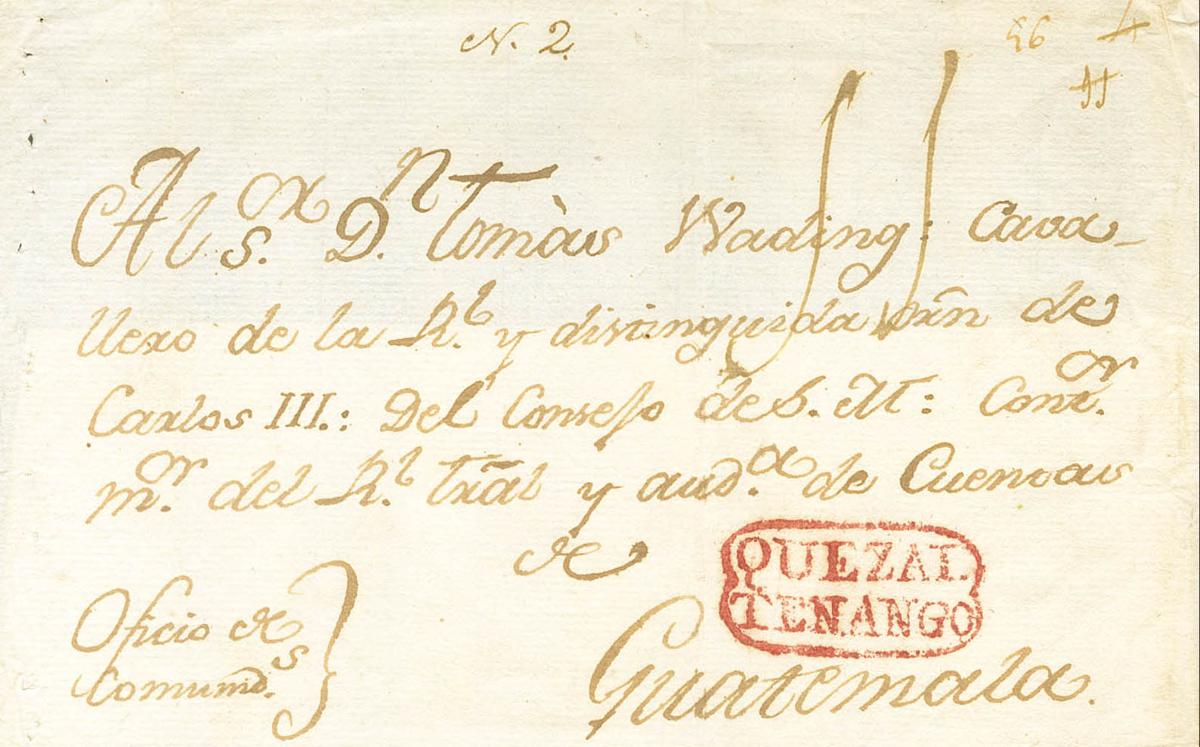 N. 2
56
Al S.or D.n Tomàs Wading: Cava-
llero de la R.l y distinguida orñ de
Carlos III.: Del Consejo de S. M: Cont.or
m.or del R.l trãl y aud.a de Cuentas
de
QUEZAL
TENANGO
Oficio de
Comunid.s
Guatemala.